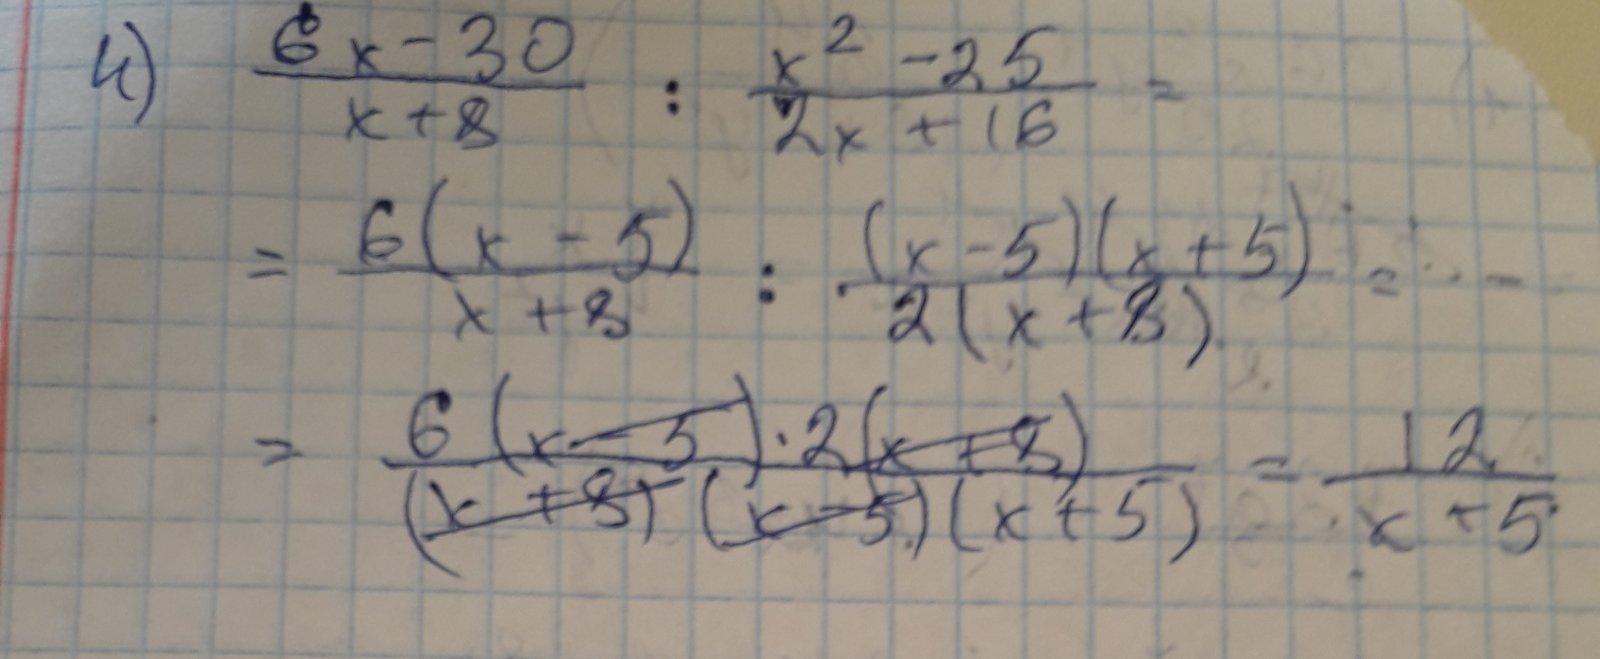 4) (6x-30)/(x+8) : (x²-25)/(2x+16) =
= 6(x-5)/(x+8) : (x-5)(x+5)/2(x+8) =
= 6(x-5)·2(x+8)/(x+8)(x-5)(x+5) = 12/(x+5)